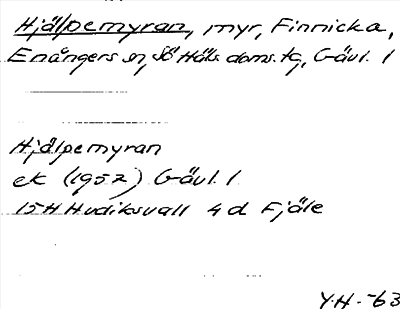 Hjälpemyran, myr, Finnicka,
Enångers sn, Sö Häls. doms. tg, Gävl. l
Hjälpemyran
ek (1952) Gävl. l
15H Hudiksvall 4 d Fjäle
Y.H. -63